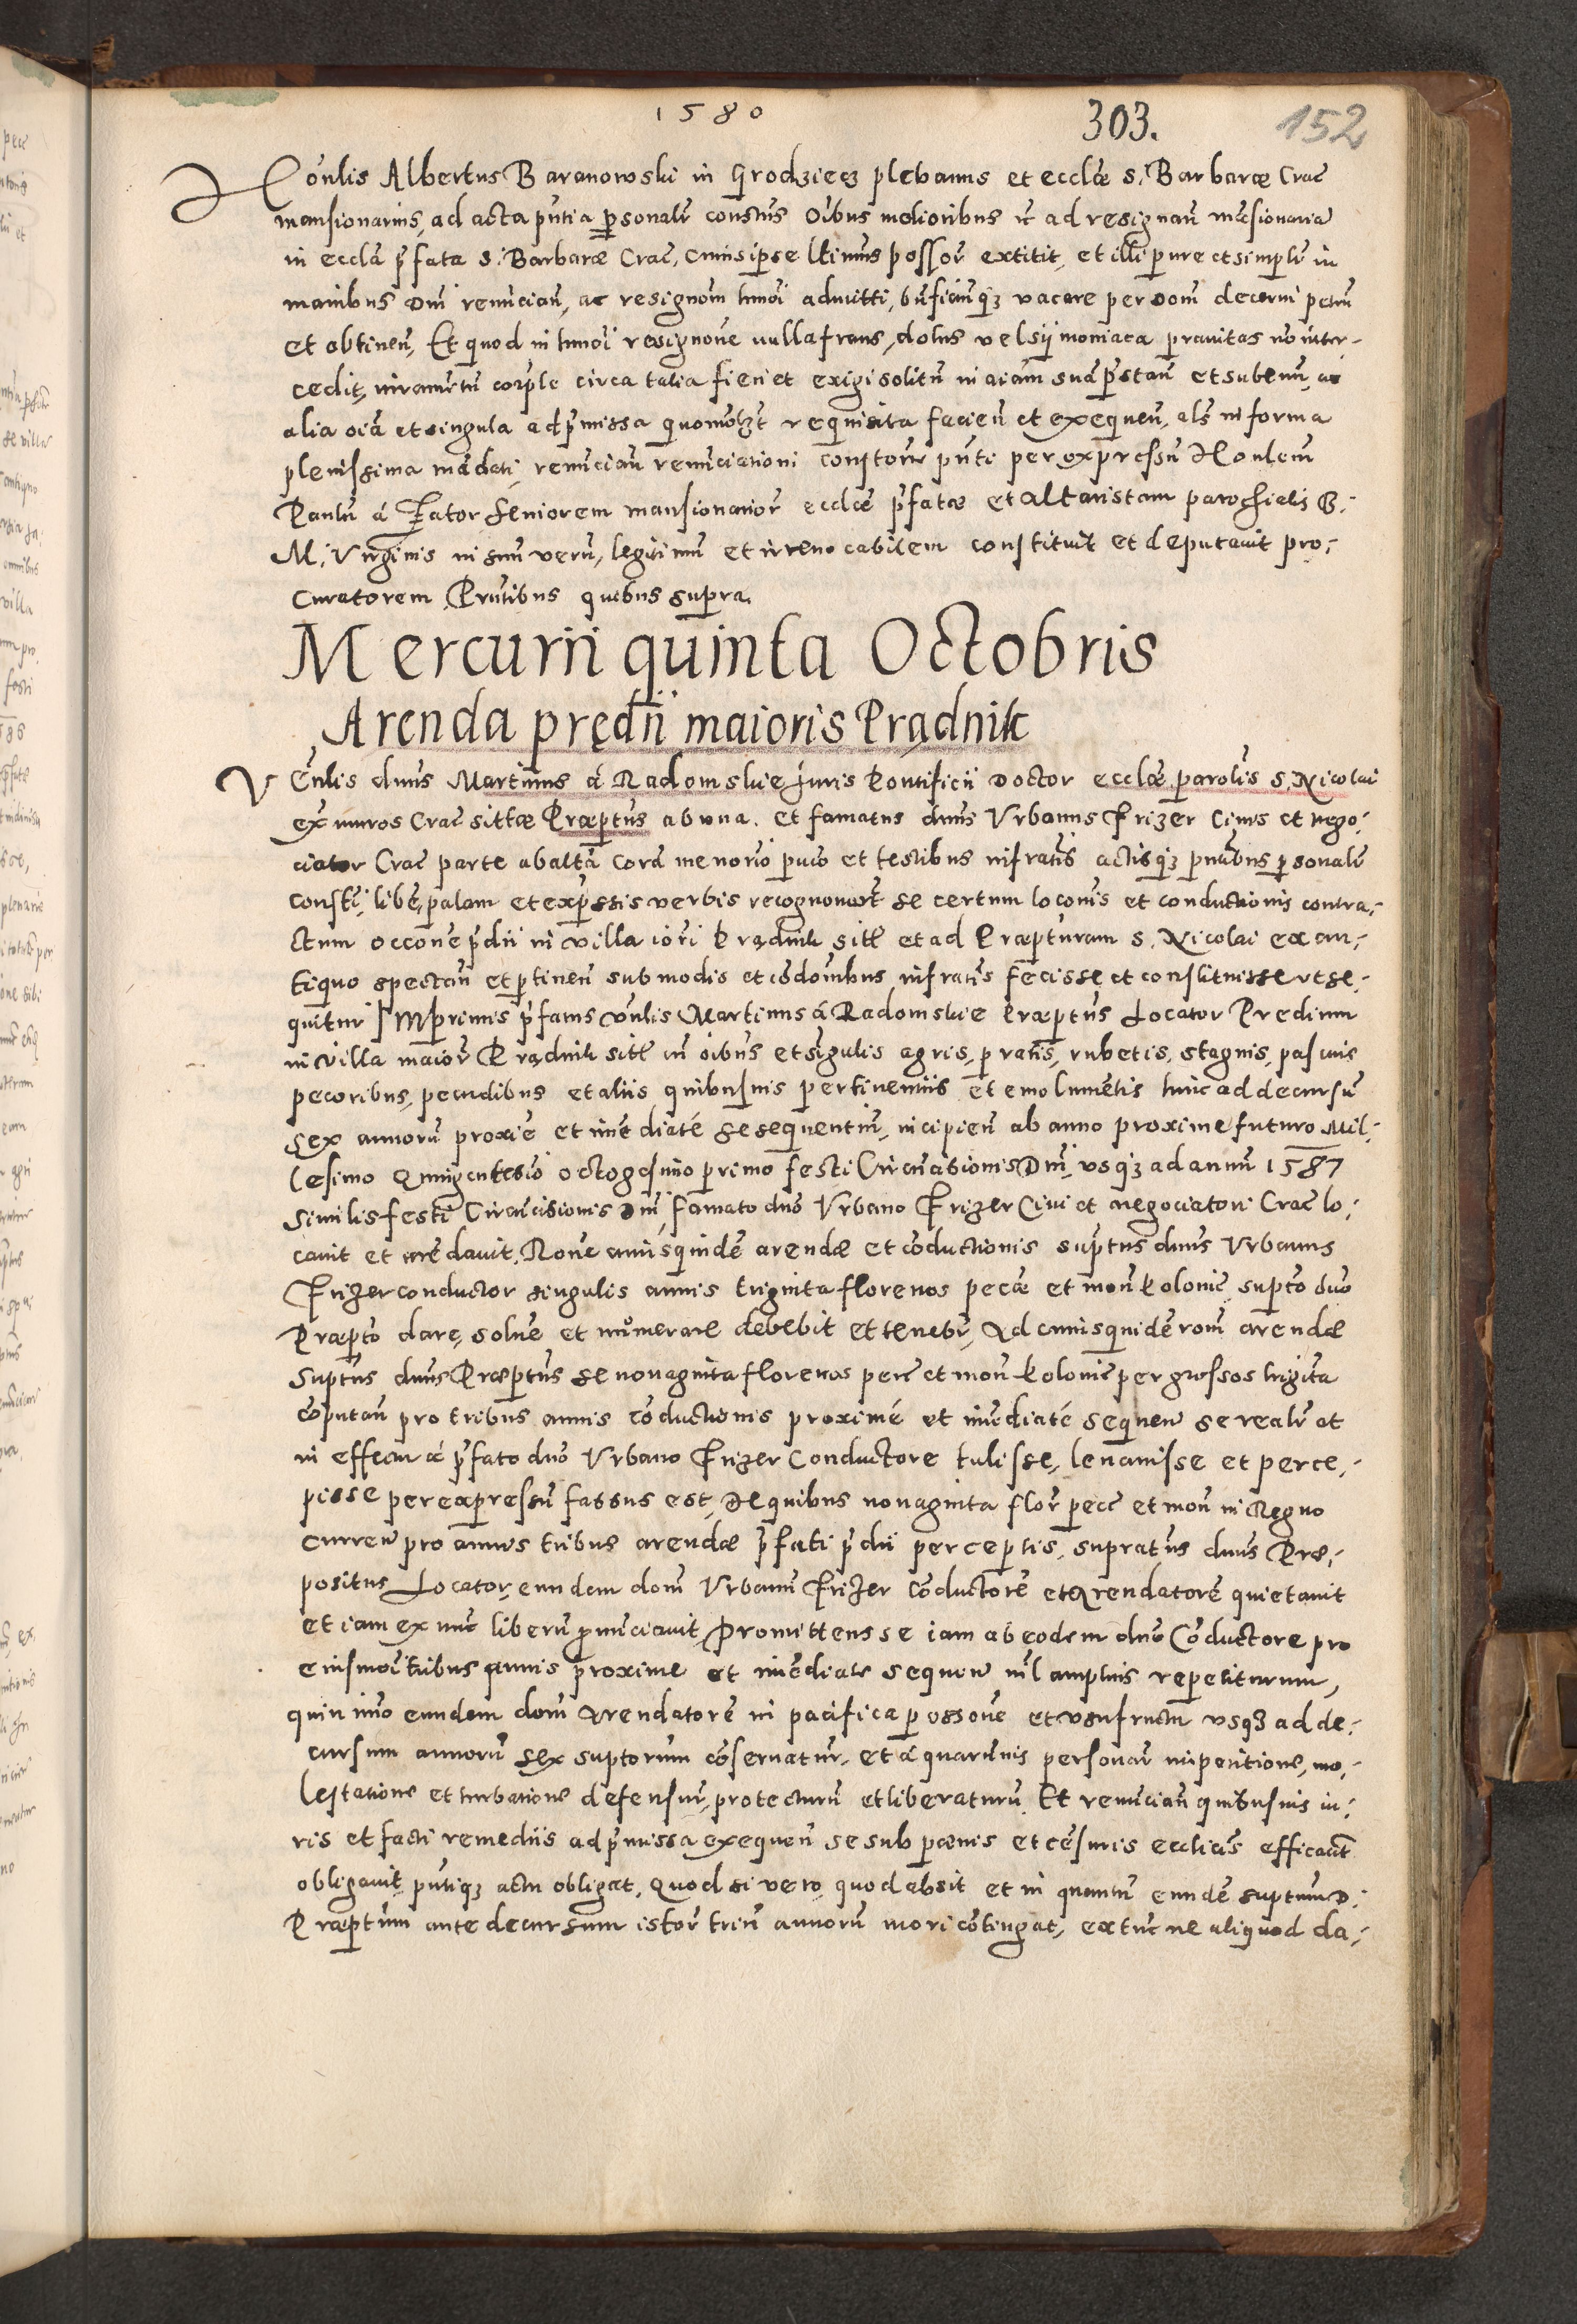 1580
303.
152
Honlis Albertus Baranowski in Grodziecz plebanus et ecclæ s. Barbaræ Crac
mansionarius, ad acta pñtia personalr constus Oibus melioribus etc ad resignan mãsionaria
in eccla p̃fata s. Barbaræ Crac, cuius ipse ltimus possor extitit, et illi pure et simplr in
manibus Dni renuncian, ac resignom hmoi admitti, bnficiumq3 vacare per Dom decerni petru
et obtinen, Et quod in hmoi resignone nulla fraus, dolus vel symoniaca prauitas no inter-
cedit, iuramentu corple circa talia fieri et exigi solitu in aiam sua p̃stan et subeun, ac
alia oia et singula ad p̃missa quomolzt requisita facien et exequen, als in forma
plenissima mãdati, renuncian renunciationi constoru pñti per expressu Honlem
Paulu á Zator Seniorem mansionarior ecclæ p̃fatæ et altaristam parochialis B.
M. Virginis in suu veru, legitimu et irreuocabilem constituit et deputauit pro-
curatorem Pñtibus quibus supra.
Mercurii quinta Octobris
Arenda prędii maioris Prądnik
Venlis dnus Martinus á Radomskie Juris Pontificii Doctor ecclæ parolis S. Nicolai
ex muros Crac sittæ Præptus ab una. et famatus dnus Vrbanus Frizer Ciuis et nego-
ciator Crac parte ab alta Cora me norio puco et testibus infratis actisq3 pñtibus personalr
consti, libe, palam et exp̃ssis verbis recognouert se certum loconis et conductionis contra-
ctum occone p̃dii in villa iori Prądnik sitt et ad Præpturam S. Nicolai ex an-
tiquo spectan et pertinen sub modis et codonibus infratis fecisse et constituisse vt se-
quitur Imprimis p̃fatus vnlis Martinus á Radomskie Præptus Locator Predium
in villa maiori Prądnik sitt cu oibus et singulis agris, pratis, rubetis, stagnis, pascuis
pecoribus, pecudibus et aliis quibusuis pertinentiis et emolumetis hinc ad decursu
sex annoru proxie et imediaté se sequentiu, incipien ab anno proxime futuro Mil-
lesimo Quingentesio octogesimo primo festi Circucisionis Dni, vsq3 ad annu 1587
similis festi Circucisionis Dni, Famato dno Vrbano Frizer Ciui et negociatori Crac lo-
cauit et aredauit. Rone cuiusquide arendæ et coductionis suptus dnus Vrbanus
Frizer conductor singulis annis triginta florenos pecæ et mon Polonic supto dno
Præpto dare, soluе et numerare debebit et tenebr, Ad cuiusquide rom arendæ
Suptus dnus Præptus se nonaginta florenos pece et mon Polonic per grossos trigita
coputan pro tribus annis coductionis proximé et imediaté sequen se realr et
in effectu á p̃fato dno Vrbano Frizer Conductore tulisse, leuauisse et perce-
pisse per expressu fassus est, De quibus nonaginta flor pecc et mon in Regno
curren pro annis tribus arendæ p̃fati p̃dii perceptis, supratus dnus Præ-
positus Locator, eundem dom Vrbanu Frizer Coductore et Arendatore quietauit
et iam ex nuc liberu pnunciauit, Promittens se iam ab eodem dno Coductore pro
eiusmoi tribus annis proxime et imediate sequen nil amplius repetiturum,
quin imo eundem dom Arendatore in pacifica possone et vsufructu vsq3 ad de-
cursum annoru sex suptorum coseruatur, et á quarumis personar impetitione, mo-
lestatione et turbatione defensur, protecturu et liberaturu. Et renuncian quibusuis iu-
ris et facti remediis ad p̃missa exequen se sub pœnis et cesuris eccliciis efficacit
obligauit pñtiq3 actu obligat, Quod si vero, quod absit et in quantu eunde suptum D.
Præptum ante decursum istor triu annoru mori cotingat, ex tuc ne aliquod da-